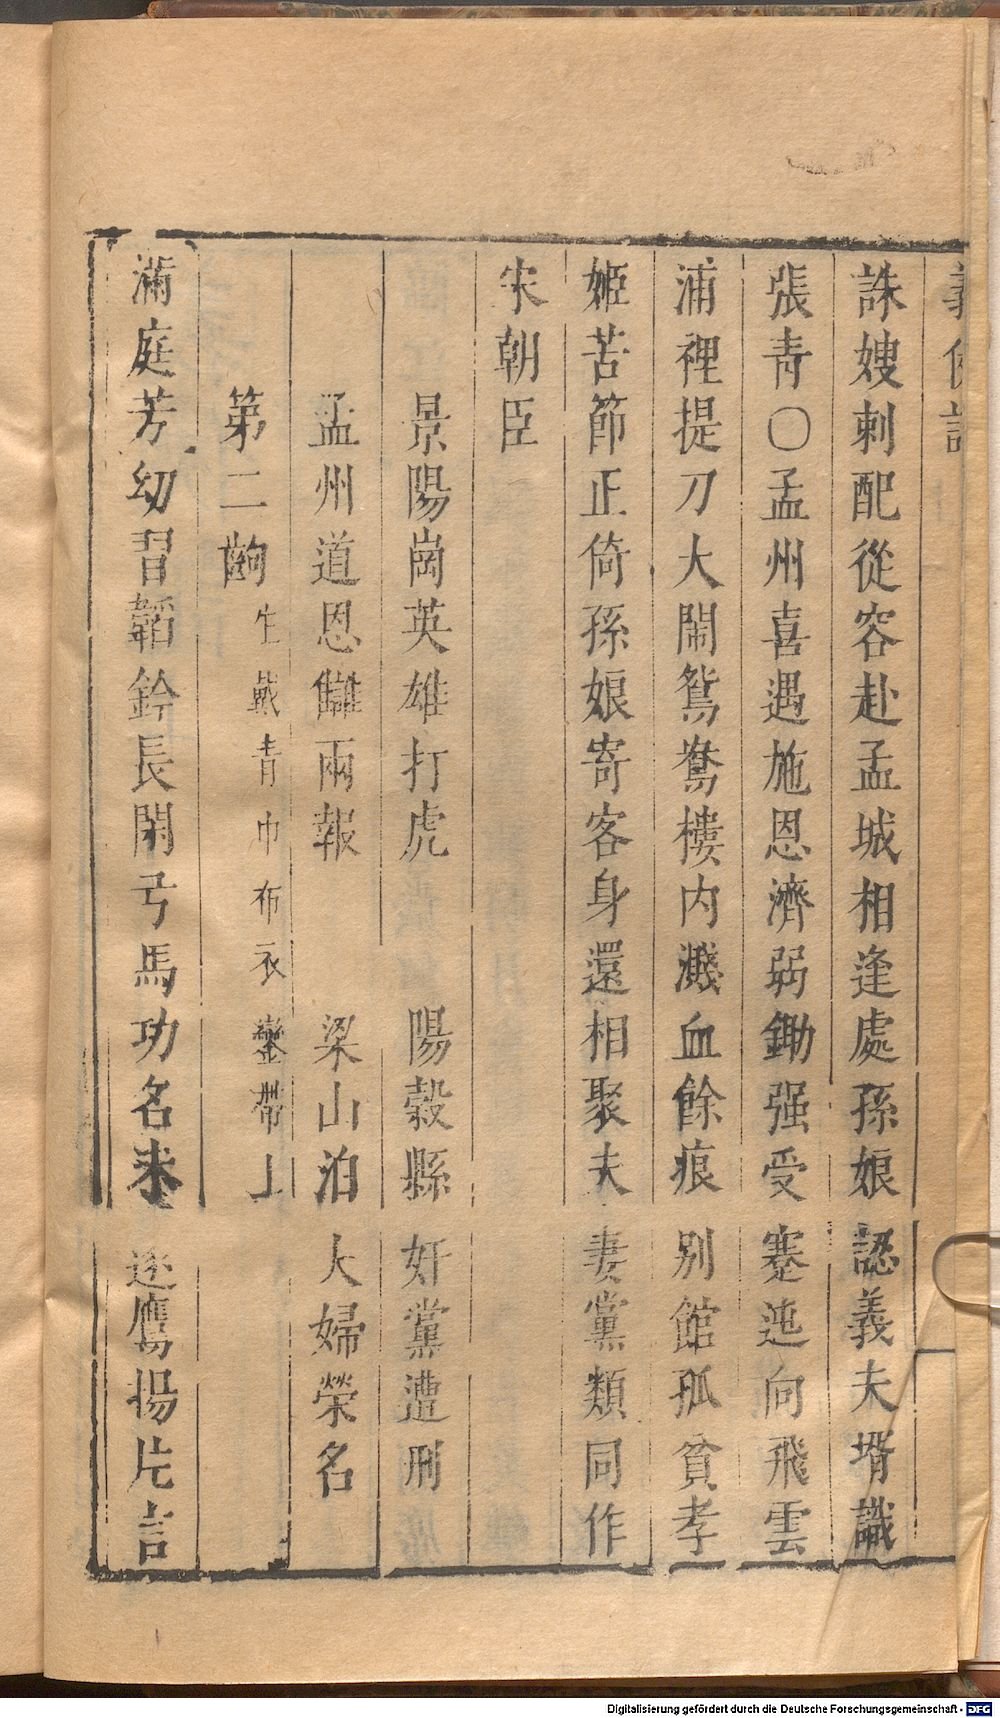 義俠記
誅嫂刺配從容赴孟城相逢處孫娘認義夫壻識
張青〇孟州喜遇施恩濟弱鋤强受蹇迍向飛雲
浦裡提刀大鬧鴛鴦樓內濺血餘痕别館孤貧孝
姬苦節正倚孫娘寄客身還相聚夫妻黨類同作
宋朝臣
景陽崗英雄打虎 陽穀縣奸黨遭刑
孟州道恩讎兩報 梁山泊大婦榮名
第二齣 生戴青巾布衣鑾帶上
滿庭芳幼習韜鈐長閑弓馬功名未遂鷹揚片言
Digitalisierung gefördert durch die Deutsche Forschungsgemeinschaft - DFG